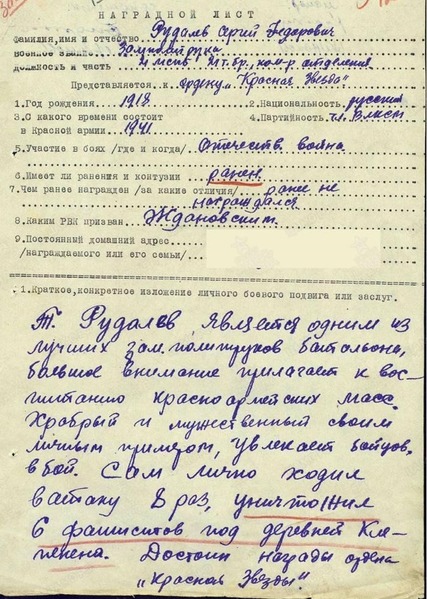 НАГРАДНОЙ ЛИСТ
Фамилия, имя и отчество Рудалев Сергей Федорович
Военное звание Замполитрука
должность и часть 21 мспб ком-р отделения
Представляется к ордену "Красная Звезда"
1.Год рождения 1918 2.Национальность русский
3.С какого времени состоит 4.Партийность чл. ВЛКСМ
в Красной армии 1941
5.Участие в боях /где и когда/ Отечеств. война
6.Имеет ли ранения и контузии ранен
7.Чем ранее награжден /за какие отличия/ ранее не
награждался
8.Каким РВК призван Ждановским
9.Постоянный домашний адрес
/награждаемого или его семьи/
1.Краткое, конкретное изложение личного боевого подвига или заслуг.
Т. Рудалев является одним из
лучших зам. политруков батальона,
большое внимание прилагает к вос-
питанию красноармейских масс.
Храбрый и мужественный своим
личным примером, увлекает бойцов
в бой. Сам лично ходил
в атаку 8 раз, уничтожил
6 фашистов под деревней Кле-
пенена. Достоин награды ордена
"Красная Звезды".